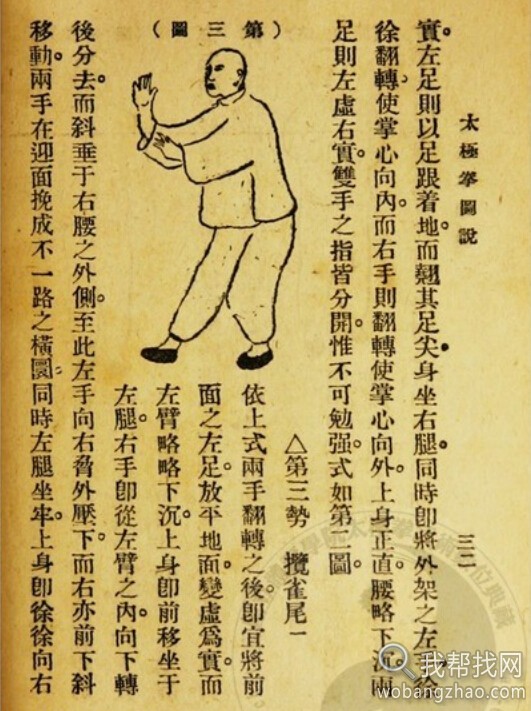 太極拳圖說
三二
實。左足則以足跟着地。而翹其足尖。身坐右腿。同時卽將外架之左徐
徐翻轉。使掌心向內。而右手則翻轉使掌心向外。上身正直。腰略下沉。兩
足則左虛右實。雙手之指皆分開。惟不可勉强。式如第二圖。
△第三勢 攬雀尾一
依上式兩手翻轉之後。卽宜將前
面之左足。放平地面。變虛爲實。而
左臂略略下沉。上身卽前移坐于
左腿。右手卽從左臂之內。向下轉
(第三圖)
後分去。而斜垂于右腰之外側。至此左手向右脅外壓下。而右亦前下斜
移動。兩手在迎面挽成不一路之橫圜。同時左腿坐牢。上身卽徐徐向右
我帮找网
wobangzhao.com